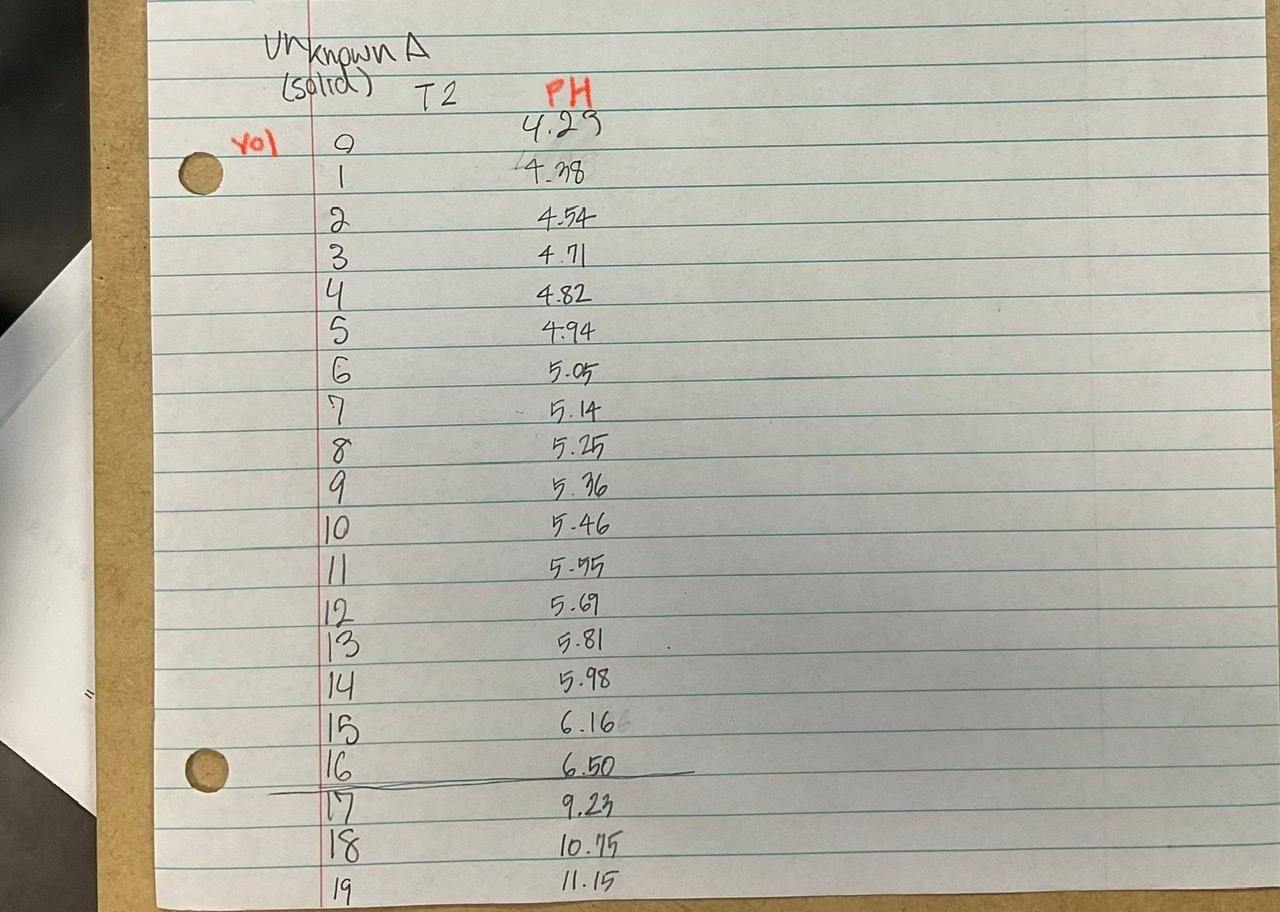 Unknown A
(solid) T2 PH
vol 0 4.23
1 4.38
2 4.54
3 4.71
4 4.82
5 4.94
6 5.05
7 5.14
8 5.25
9 5.36
10 5.46
11 5.55
12 5.69
13 5.81
14 5.98
15 6.16
16 6.50
17 9.23
18 10.75
19 11.15